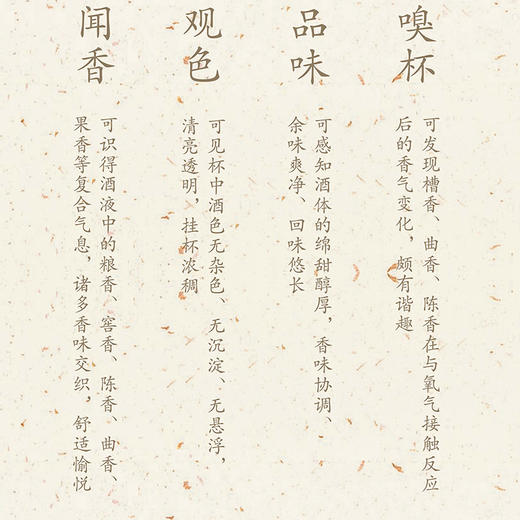 嗅杯
可发现糟香、曲香、陈香在与氧气接触反应
后的香气变化，颇有谐趣
品味
可感知酒体的绵甜醇厚，香味协调、
余味爽净、回味悠长
观色
可见杯中酒色无杂色、无沉淀、无悬浮，
清亮透明，挂杯浓稠
闻香
可识得酒液中的粮香、窖香、陈香、曲香、
果香等复合气息，诸多香味交织，舒适愉悦